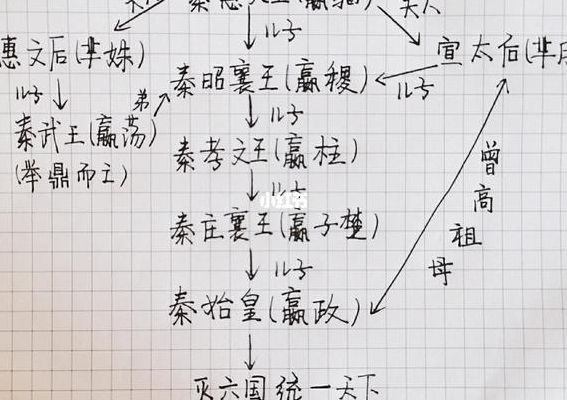 儿子
惠文后(芈姝)
宣太后(芈
儿子
弟
秦昭襄王(嬴稷)
儿子
秦武王(嬴荡)
(举鼎而亡)
儿子
秦孝文王(嬴柱)
儿子
秦庄襄王(嬴子楚)
儿子
曾高祖母
秦始皇(嬴政)
灭六国统一天下